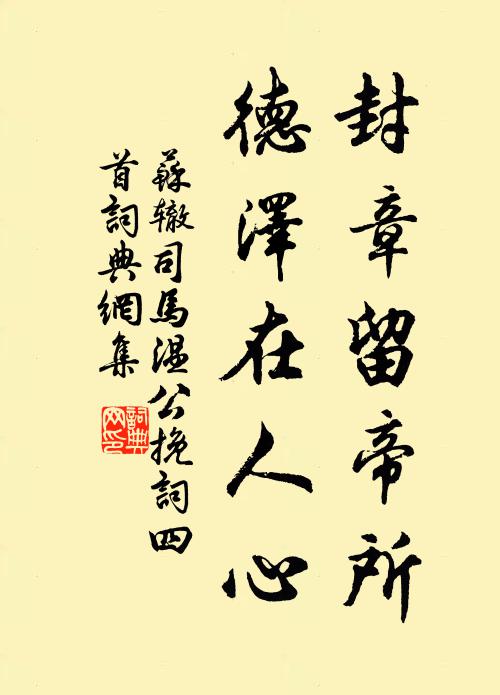 封章留帝所
德澤在人心
蘇轍司馬温公挽詞四
首詞典網集
詞典
网印